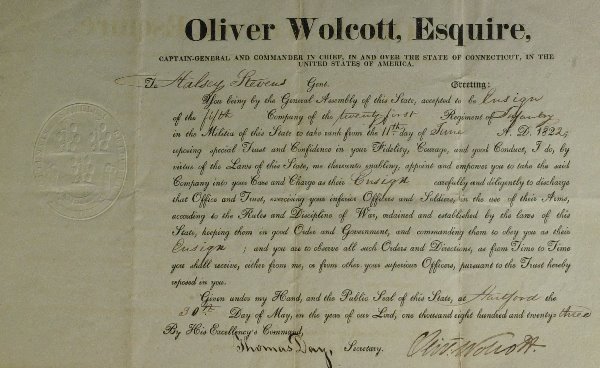 Oliver Wolcott, Esquire,
CAPTAIN-GENERAL AND COMMANDER IN CHIEF, IN AND OVER THE STATE OF CONNECTICUT, IN THE
UNITED STATES OF AMERICA.
To Halsey Stevens Gent. Greeting:
You being by the General Assembly of this State, accepted to be Ensign
of the fifth Company of the twenty first Regiment of Infantry
in the Militia of this State to take rank from the 11th day of June A. D. 1822,
reposing special Trust and Confidence in your Fidelity, Courage, and good Conduct, I do, by
virtue of the Laws of this State, me thereunto enabling, appoint and empower you to take the said
Company into your Care and Charge as their Ensign carefully and diligently to discharge
that Office and Trust, exercising your inferior Officers and Soldiers, in the use of their Arms,
according to the Rules and Discipline of War, ordained and established by the laws of this
State, keeping them in good Order and Government, and commanding them to obey you as their
Ensign ; and you are to observe all such Orders and Directions, as from Time to Time
you shall receive, either from me, or from other your superior Officers, pursuant to the Trust hereby
reposed in you.
Given under my Hand, and the Public Seal of this State, at Hartford the
30th Day of May, in the year of our Lord, one thousand eight hundred and twenty three
By His Excellency's Command,
Thomas Day, Secretary. Oliv. Wolcott.